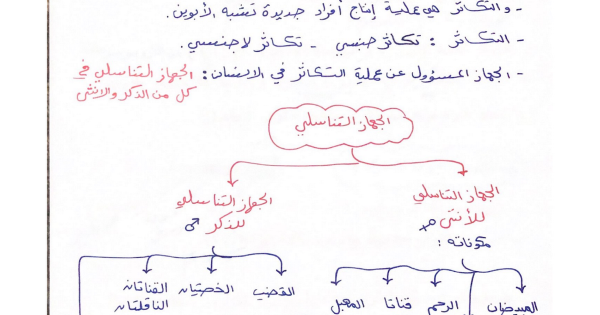 - والتكاثر هي عملية إنتاج أفراد جديدة تشبه الأبوين.
- التكاثر : تكاثر جنسي - تكاثر لاجنسي.
- الجهاز المسؤول عن عملية التكاثر في الانسان : الجهاز التناسلي في
كل من الذكر والانثى
الجهاز التناسلي
الجهاز التناسلي
للأنثى
مكوناته :
الجهاز التناسلي
للذكر
المبيضان
الرحم
قناتا
المهبل
القضيب
الخصيتان
القناتان
الناقلتان